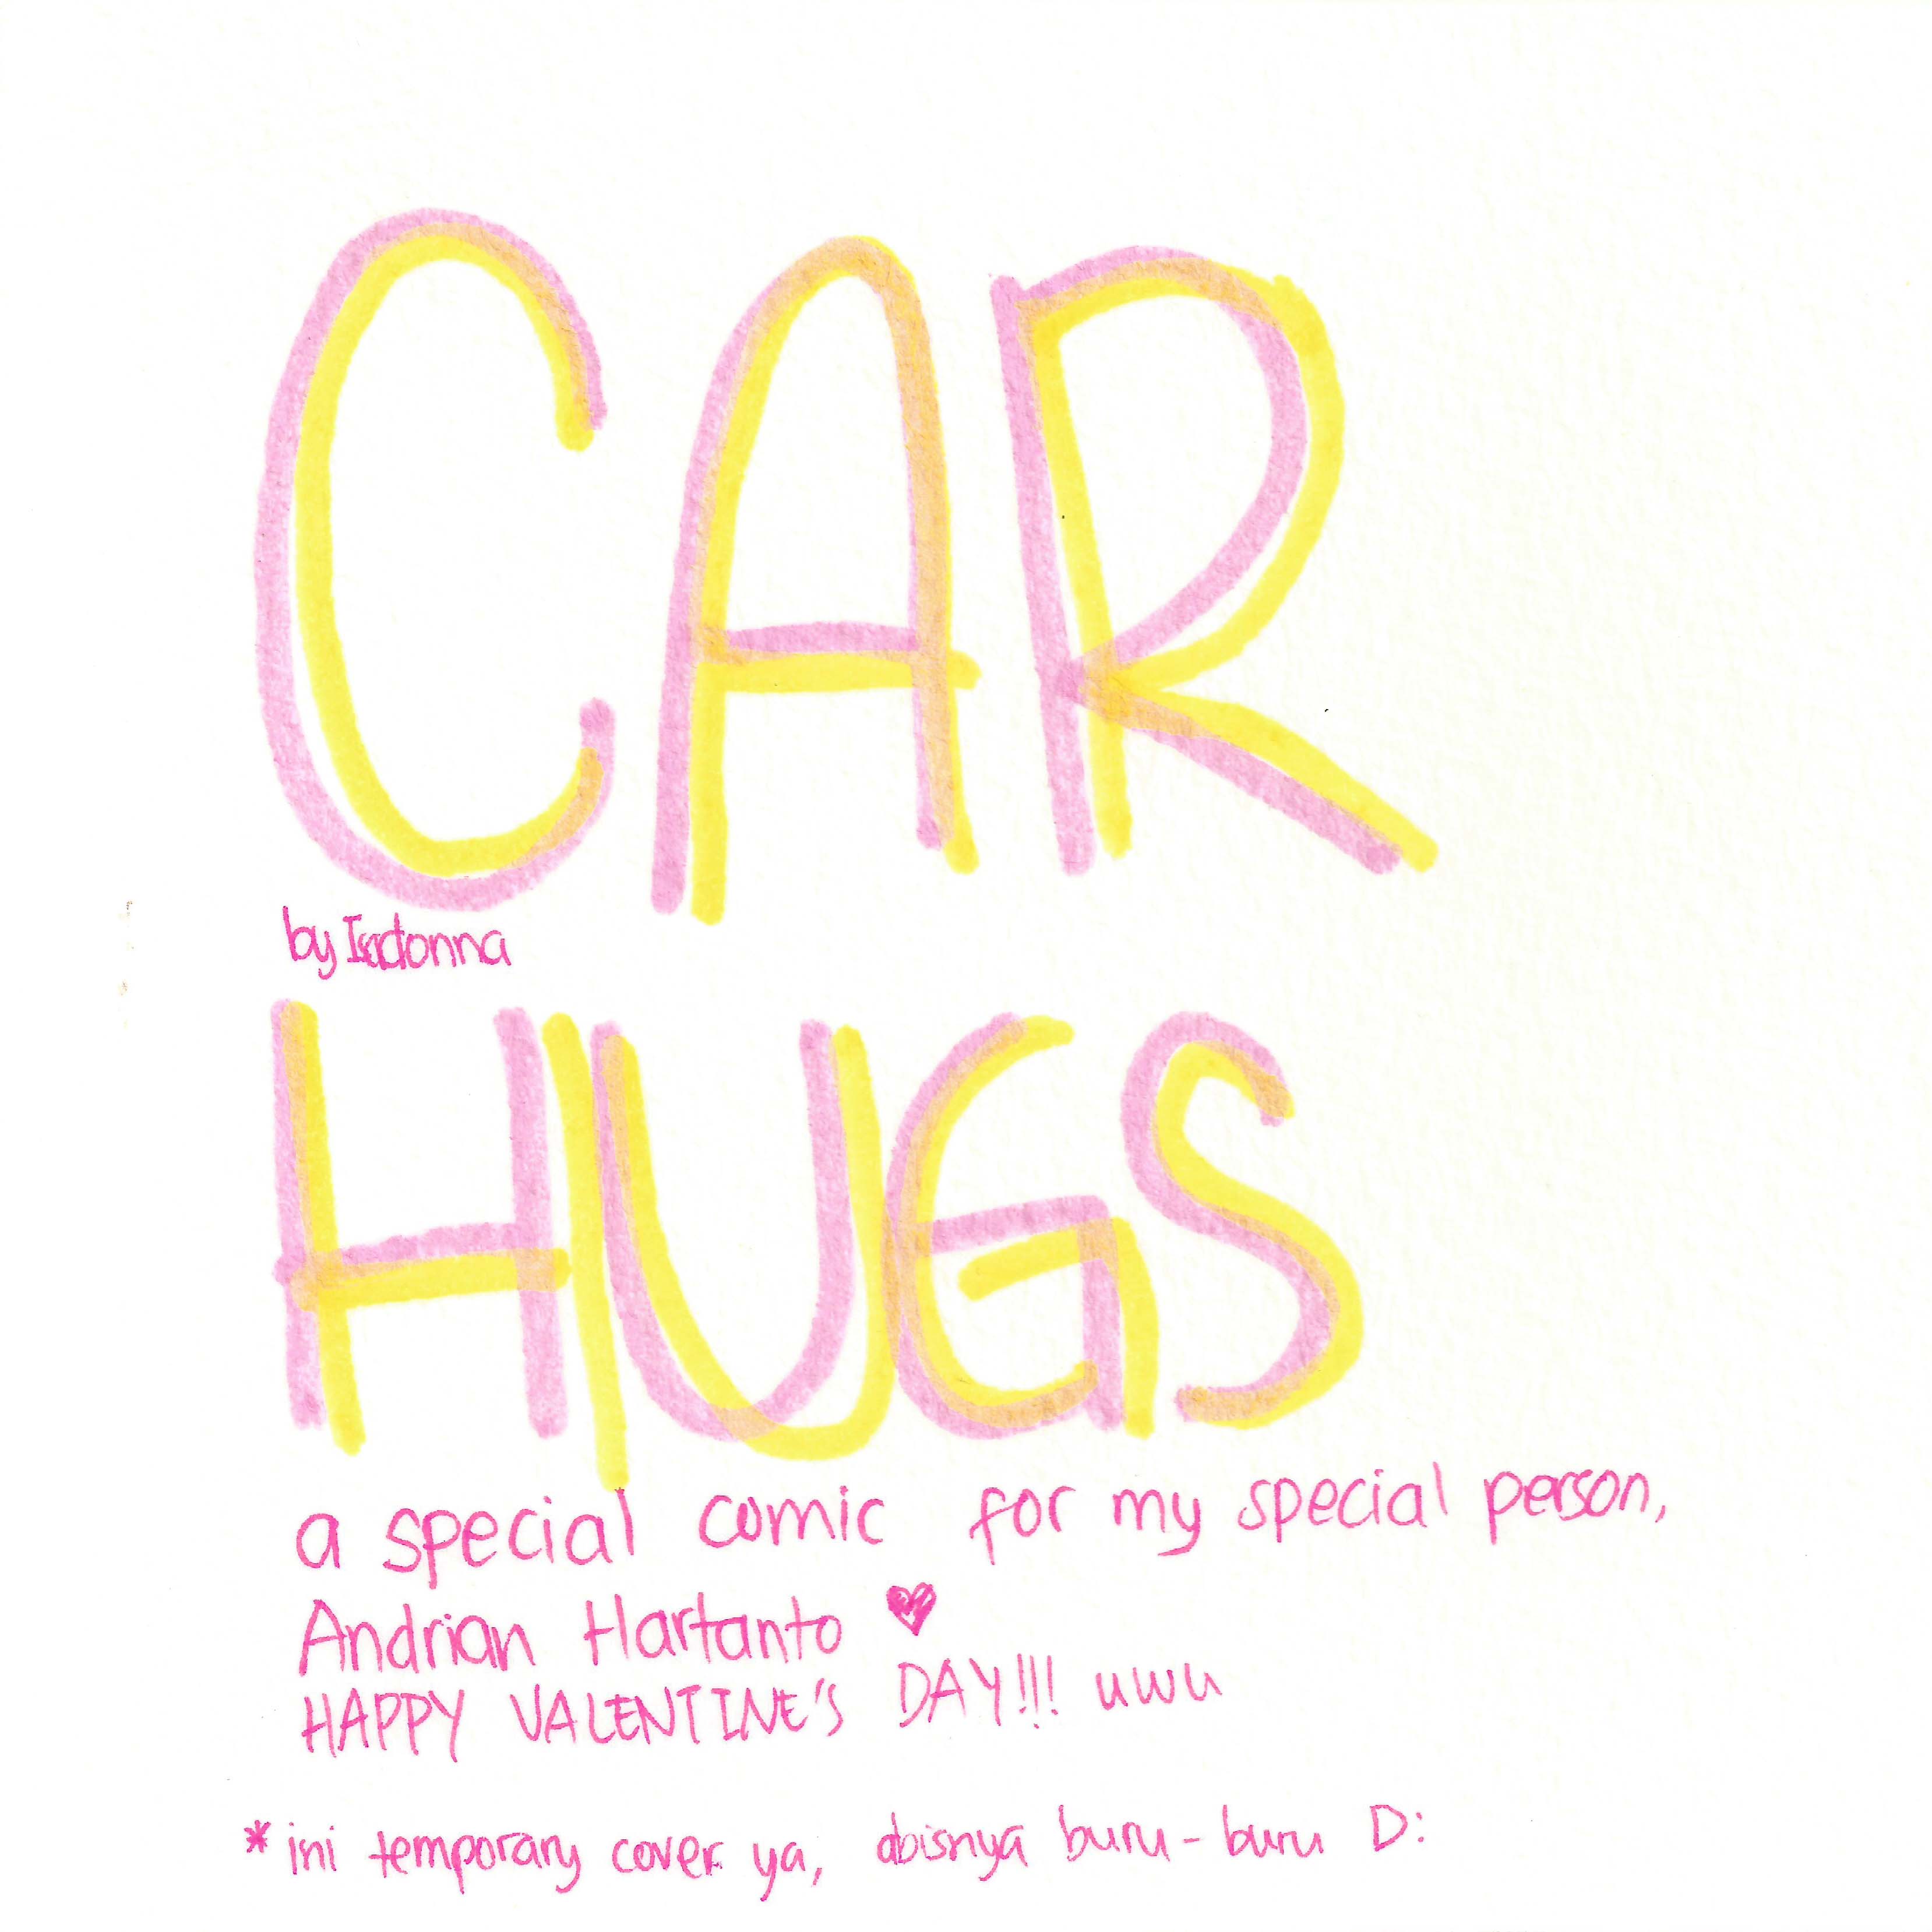 CAR
by Isadonna
HUGS
a special comic for my special person,
Andrian Hartanto ♥
HAPPY VALENTINE'S DAY!!! uwu
* ini temporary cover ya, abisnya buru-buru D: